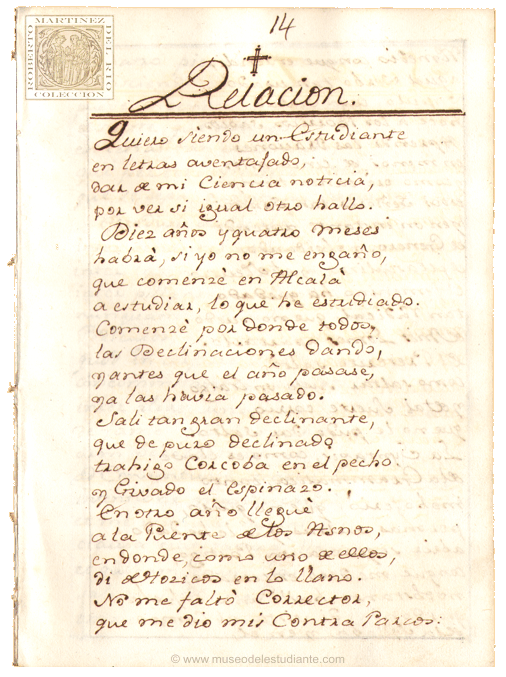 ROBERTO MARTINEZ DEL RIO
COLECCION
14
Relacion.
Quiero siendo un Estudiante
en letras aventajado,
dar de mi Ciencia noticia,
por ver si igual otro hallo.
Diez años y quatro meses
habrà, si yo no me engaño,
que comenzè en Alcalà
a estudiar, lo que he estudiado.
Comenzè por donde todos,
las Declinaciones dando,
y antes que el año pasase,
ya las havia pasado.
Sali tan gran declinante,
que de puro declinado
trahigo Corcoba en el pecho
y Givado el Espinazo.
En otro año lleguè
a la Puente de los Asnos,
en donde, como uno de ellos,
di de Hozicos en lo llano.
No me faltò Corrector,
que me dio mis Contra Parcos:
© www.museodelestudiante.com